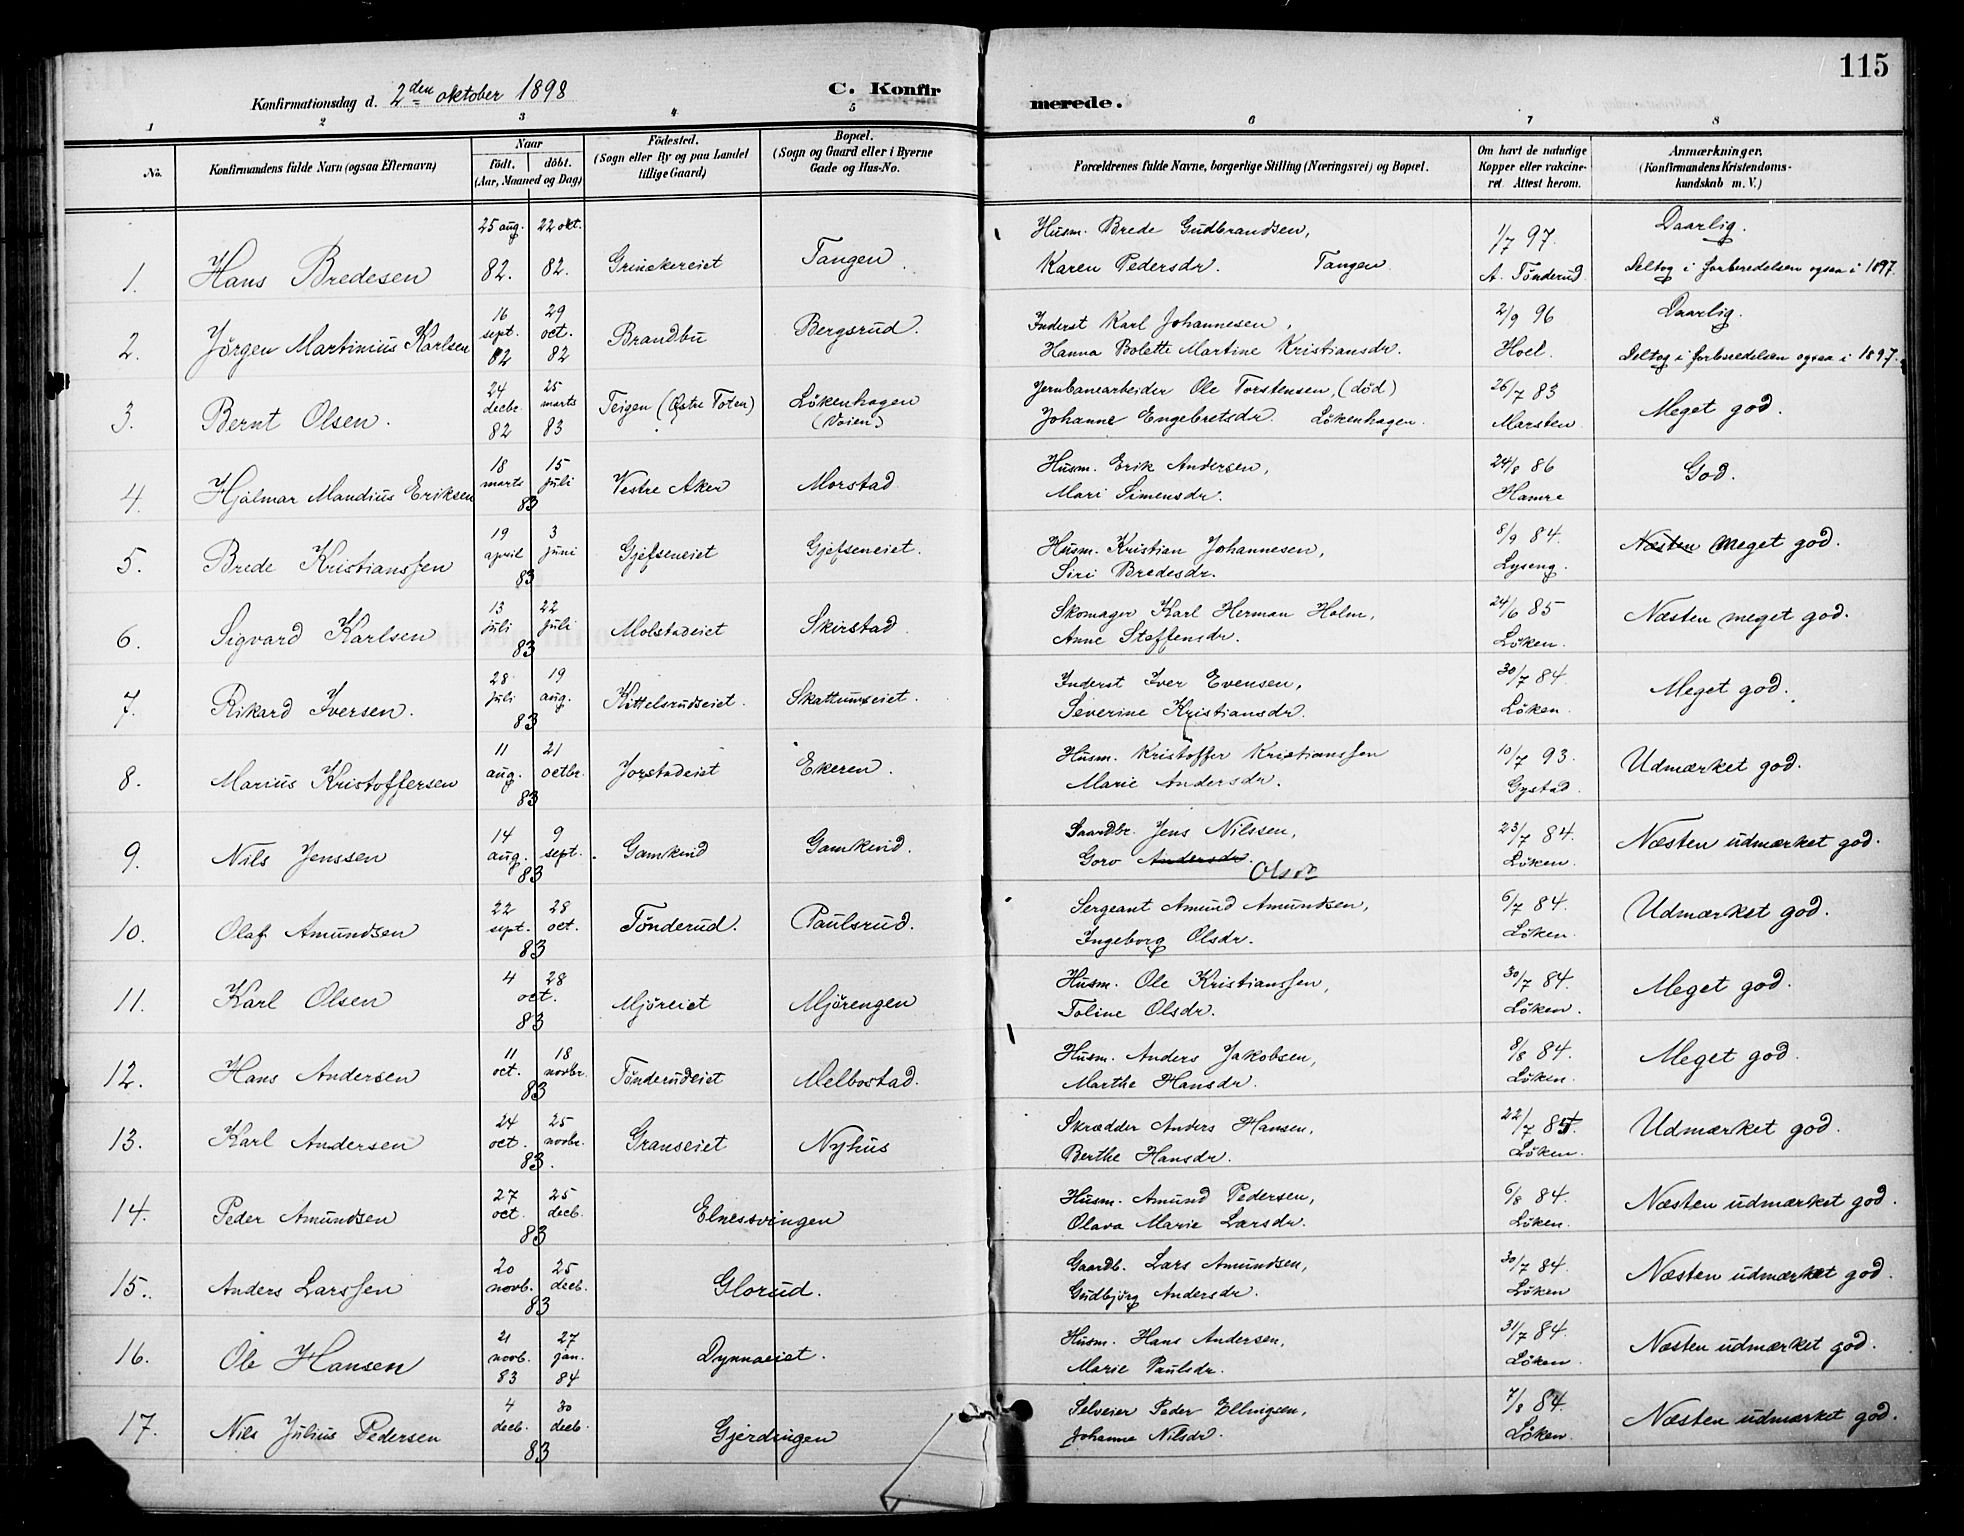 115
Konfirmationsdag d. 2den oktober 1898 C. Konfirmerede.
1 2 3 4 5 6 7 8
No. Konfirmandens fulde Navn (ogsaa Efternavn) Naar født. døbt. (Aar, Maaned og Dag) Fødested. (Sogn eller By og paa Landet tillige Gaard) Bopæl. (Sogn og Gaard eller i Byerne Gade og Hus-No. Forældrenes fulde Navne, borgerlige Stilling (Næringsvei) og Bopæl. Om havt de naturlige Kopper eller vakcineret Attest herom. Anmærkninger. (Konfirmandens Kristendomskundskab m. V.)
1. Hans Bredesen 25 aug. 82. 22 okt. 82. Grinekereiet Tangen Husm. Brede Gudbrandsen, Karen Pedersdr. Tangen 1/7 97. A. Tönderud Daarlig. Deltog i forberedelsen ogsaa i 1897.
2. Jörgen Martinius Karlsen 16 sept. 82 29 oct. 82 Brandbu Bergsrud. Inderst Karl Johannesen, Hanna Bolette Martine Kristiansdr. 2/9 96 Hoel. Daarlig. Deltog i forberedelsen ogsaa i 1897.
3. Bernt Olsen. 24 decbr. 82 25 marts 83 Teigen (Østre Toten) Lökenhagen (Voien) Jernbanearbeider Ole Torstensen, (död) Johanne Engebretsdr. Lökenhagen. 26/7 83 Marsten Meget god.
4. Hjalmar Mandius Eriksen 18 marts 15 juli 83 Vestre Aker Morstad Husm. Erik Andersen, Mari Simensdr. 24/8 86 Hamre God.
5. Brede Kristianssen 19 april 3 juni 83 Gjefseneiet Gjefseneiet. Husm. Kristian Johannesen, Siri Bredesdr. 8/9 84. Lyseng. Næsten meget god.
6. Sigvard Karlsen 13 juli 22 juli 83 Molstadeiet Skirstad Skomager Karl Herman Holm, Anne Steffensdr. 24/6 85 Löken. Næsten meget god.
7. Rikard Iversen. 28 juli 19 aug. 83 Kittelsrudseiet. Skattumseiet. Inderst Iver Evensen, Severine Kristiansdr. 30/7 84. Löken. Meget god.
8. Marius Kristoffersen 11 aug. 21 octbr. 83 Jorstadeiet Ekeren. Husm. Kristoffer Kristianssen Marie Andersdr. 10/7 93. Gystad. Udmærket god.
9. Nils Jenssen 14 aug. 9 sept. 83 Gamkind Gamkvid. Gaardbr. Jens Nilssen, Goro Andersdr. Olsdr 23/7 84. Löken. Næsten udmærket god.
10. Olaf Amundsen 22 sept. 28 oct. 83 Tönderud. Paulsrud. Sergeant Amund Amundsen, Ingeborg Olsdr. 6/7 84. Löken. Udmærket god.
11. Karl Olsen 4 28 oct. 83 Mjöreiet Mjörengen Husm. Ole Kristianssen, Toline Olsdr. 30/7 84. Löken. Meget god.
12. Hans Andersen 11 oct. 18 novbr. 83 Tönderudeiet Melbostad. Husm. Anders Jakobsen, Marthe Hansdr. 8/8 84. Löken. Meget god.
13. Karl Andersen 24 oct. 25 novbr. 83. Granseiet Nyhus Skrædder Anders Hansen, Berthe Hansdr. 22/7 85. Löken. Udmærket god.
14. Peder Amundsen 27 oct. 25 decb. 83 Elnessvingen Husm. Amund Pedersen, Olava Marie Larsdr. 6/8 84. Löken. Næsten udmærket god.
15. Anders Larssen 20 novb. 25 decb. 83 Glorud. Gaardb. Lars Amundsen, Gudbjörg Andersdr. 30/7 84. Löken Næsten udmærket god.
16. Ole Hansen 21 novb. 83 27 jan. 84 Dynnaeiet. Husm. Hans Andersen, Marie Paulsdr. 31/7 84. Löken. Næsten udmærket god.
17. Nils Julius Pedersen 4 decb. 30 decb. 83 Gjerdingen Selveier Peder Ellingsen, Johanne Nilsdr. 7/8 84. Löken. Næsten udmærket god.